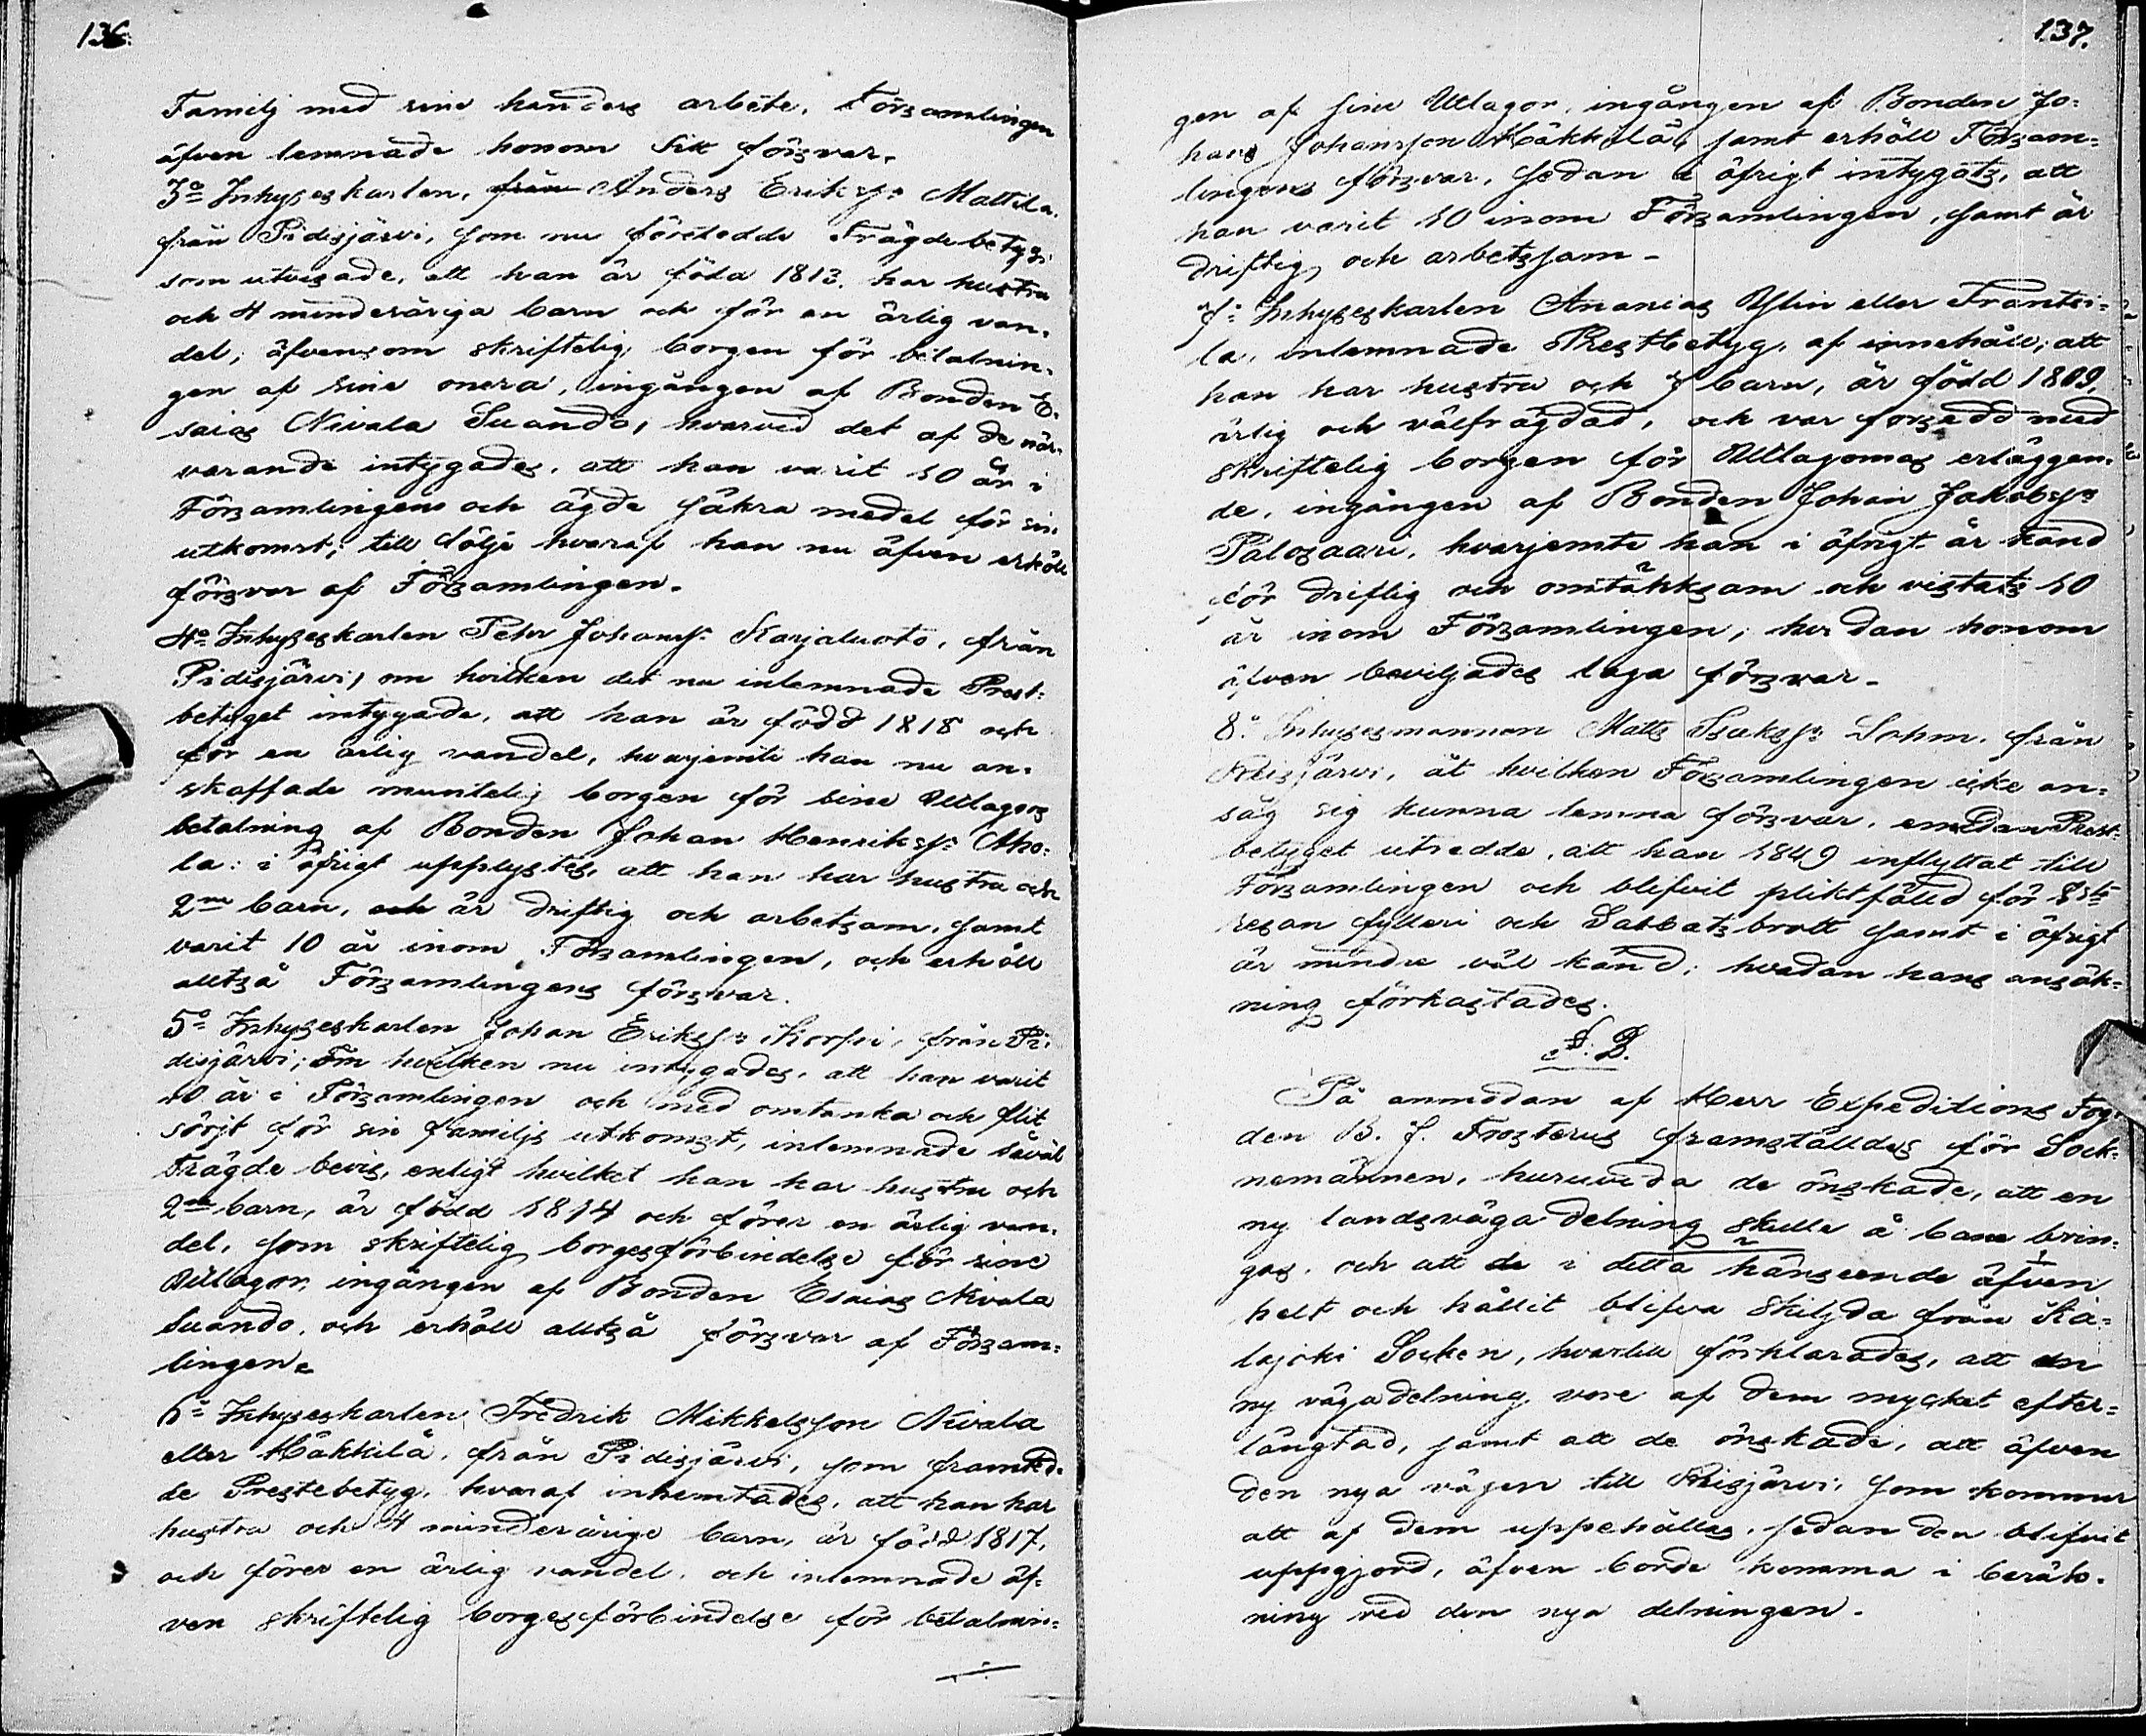 136.
Familj med sine handers arbete. Församlingen
äfven lemnade honom sitt försvar.
3o Inhyseskarlen, från Anders Eriks: Mattila.
från Pidisjärvi, som nu företedde Frägdebetyg,
som utvisade, att han är föda 1813. har hustru
och 4 minderåriga barn och för en ärlig van-
del, äfvensom skriftelig borgen för betalnin-
gen af sine onera, ingången af Bonden E-
saias Nivala Suando, hvarvid det af de när-
varande intygades, att han varit 10 år i
Församlingen och ägde säkra medel för sin
utkomst; till följe hvaraf han nu äfven erhöll
försvar af Församlingen.
4o Inhyseskarlen Pehr Johans: Karjaluoto, från
Pidisjärvi, om hvilken det nu inlemnade Prest-
betyget intygade, att han är född 1818 och
för en ärlig vandel, hvarjemte han nu an-
skaffade muntelig borgen för sine Utlagors
betalning af Bonden Johan Henriks: Aho-
la: i öfrigt upplystes, att han har hustru och
2ne barn, och är driftig och arbetsam, samt
varit 10 år inom Församlingen, och erhöll
alltså Församlingens försvar.
5o Inhyseskarlen Johan Eriks: Korpi, från Pi-
disjärvi; om hvilken nu intygades, att han varit
10 år i Församlingen och med omtanka och flit
sörjt för sin familjs utkomst, inlemnade såväl
frägde bevis, enligt hvilket han har hustru och
2ne barn, är född 1814 och förer en ärlig van-
del, som skriftelig borgesförbindelse för sine
Utlagor, ingången af Bonden Esaias Nivala
Suando, och erhöll alltså försvar af Försam-
lingen.
6o Inhyseskarlen Fredrik Mikkelsson Nivala
eller Häkkilä, från Pidisjärvi, som framted-
de Prestebetyg, hvaraf inhemtades, att han har
hustru och 4 minderårige barn, är född 1817,
och förer en ärlig vandel, och inlemnade äf-
ven skriftelig borgesförbindelse för betalnin-
137.
gen af sine Utlagor, ingången af Bonden Jo-
hans Johansson Häkkilä, samt erhöll Försam-
lingens försvar, sedan i öfrigt intygats, att
han varit 10 inom Församlingen, samt är
driftig och arbetssam.
7: Inhyseskarlen Ananias Ylin eller Frantsi-
la, inlemnade Prestbetyg, af innehåll, att
han har hustru och 7 barn, är född 1809,
ärlig och välfrägdad, och var forsedd med
skriftelig borgen för Utlagornas erläggan-
de, ingången af Bonden Johan Jakobs:
Palosaari, hvarjemte han i öfrigt är känd
för driftig och omtänksam och vistats 10
år inom Församlingen, hvadan honom
äfven beviljades laga försvar.
8o Inhysesmannen Matts Isaks: Lohm. från
Reisjärvi, åt hvilken Församlingen icke an-
såg sig kunna lemna försvar, emedan Prest-
betyget utredde, att han 1849 inflyttat till
Församlingen och blifvit pliktfälld för 1sta
resan fylleri och Sabbatsbrott samt i öfrigt
är mindre väl känd; hvadan hans ansök-
ning förkastades.
På anmodan af Herr Expeditions Fog-
den B. J. Frosterus framställdes för Sock-
nemännen, huruvida de önskade, att en
ny landsväga delning skulle å bane brin-
gas, och att de i detta hänseende äfven
helt och hållit blifva skiljda från Ka-
lajoki Socken, hvartill förklarades, att en
ny vägadelning vore af dem mycket efter-
längtad, samt att de önskade, att äfven
den nya vägen till Reisjärvi, som kommer
att af dem uppehållas, sedan den blifvit
uppgjord, äfven borde komma i beräk-
ning ved den nya delningen.